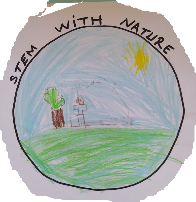 STEM WITH NATURE